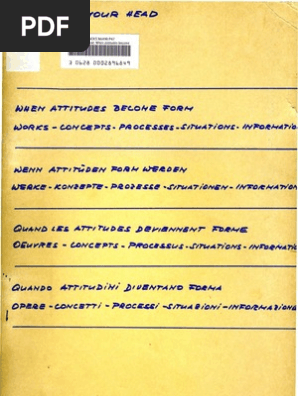 PDF
YOUR HEAD
3 0620 0002896849
WHEN ATTITUDES BECOME FORM
WORKS - CONCEPTS - PROCESSES - SITUATIONS - INFORMATIO
WENN ATTITÜDEN FORM WERDEN
WERKE - KONZEPTE - PROZESSE - SITUATIONEN - INFORMATION
QUAND LES ATTITUDES DEVIENNENT FORME
OEUVRES - CONCEPTS - PROCESSUS - SITUATIONS - INFORMATI
QUANDO ATTITUDINI DIVENTANO FORMA
OPERE - CONCETTI - PROCESSI - SITUAZIONI - INFORMAZIONE